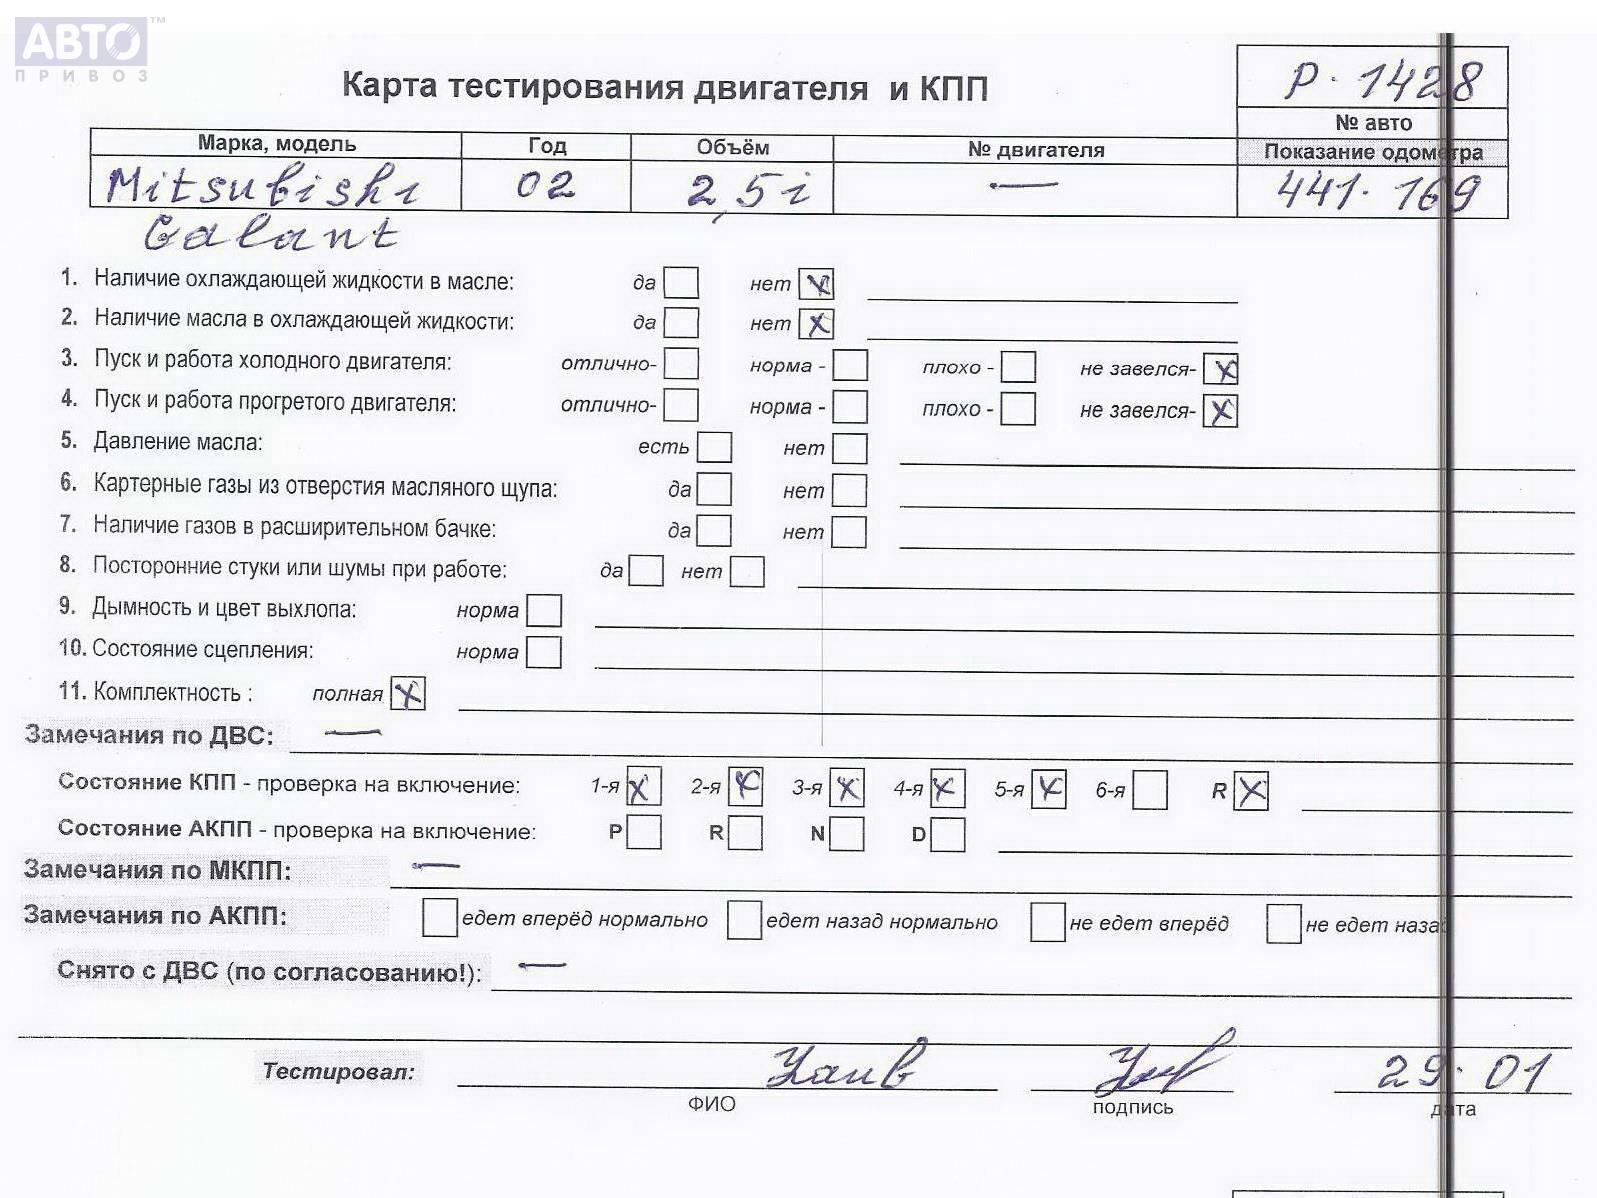 АВТО™
ПРИВОЗ
Карта тестирования двигателя и КПП
Р. 1428
№ авто
Марка, модель Год Объём № двигателя Показание одометра
Mitsubishi 02 2,5i — 441.169
Galant
1. Наличие охлаждающей жидкости в масле: да нет X
2. Наличие масла в охлаждающей жидкости: да нет X
3. Пуск и работа холодного двигателя: отлично- норма - плохо - не завелся- X
4. Пуск и работа прогретого двигателя: отлично- норма - плохо - не завелся- X
5. Давление масла: есть нет
6. Картерные газы из отверстия масляного щупа: да нет
7. Наличие газов в расширительном бачке: да нет
8. Посторонние стуки или шумы при работе: да нет
9. Дымность и цвет выхлопа: норма
10. Состояние сцепления: норма
11. Комплектность : полная X
Замечания по ДВС: —
Состояние КПП - проверка на включение: 1-я X 2-я X 3-я X 4-я X 5-я X 6-я R X
Состояние АКПП - проверка на включение: P R N D
Замечания по МКПП: —
Замечания по АКПП: едет вперёд нормально едет назад нормально не едет вперёд не едет назад
Снято с ДВС (по согласованию!): —
Тестировал: 29.01
ФИО подпись дата